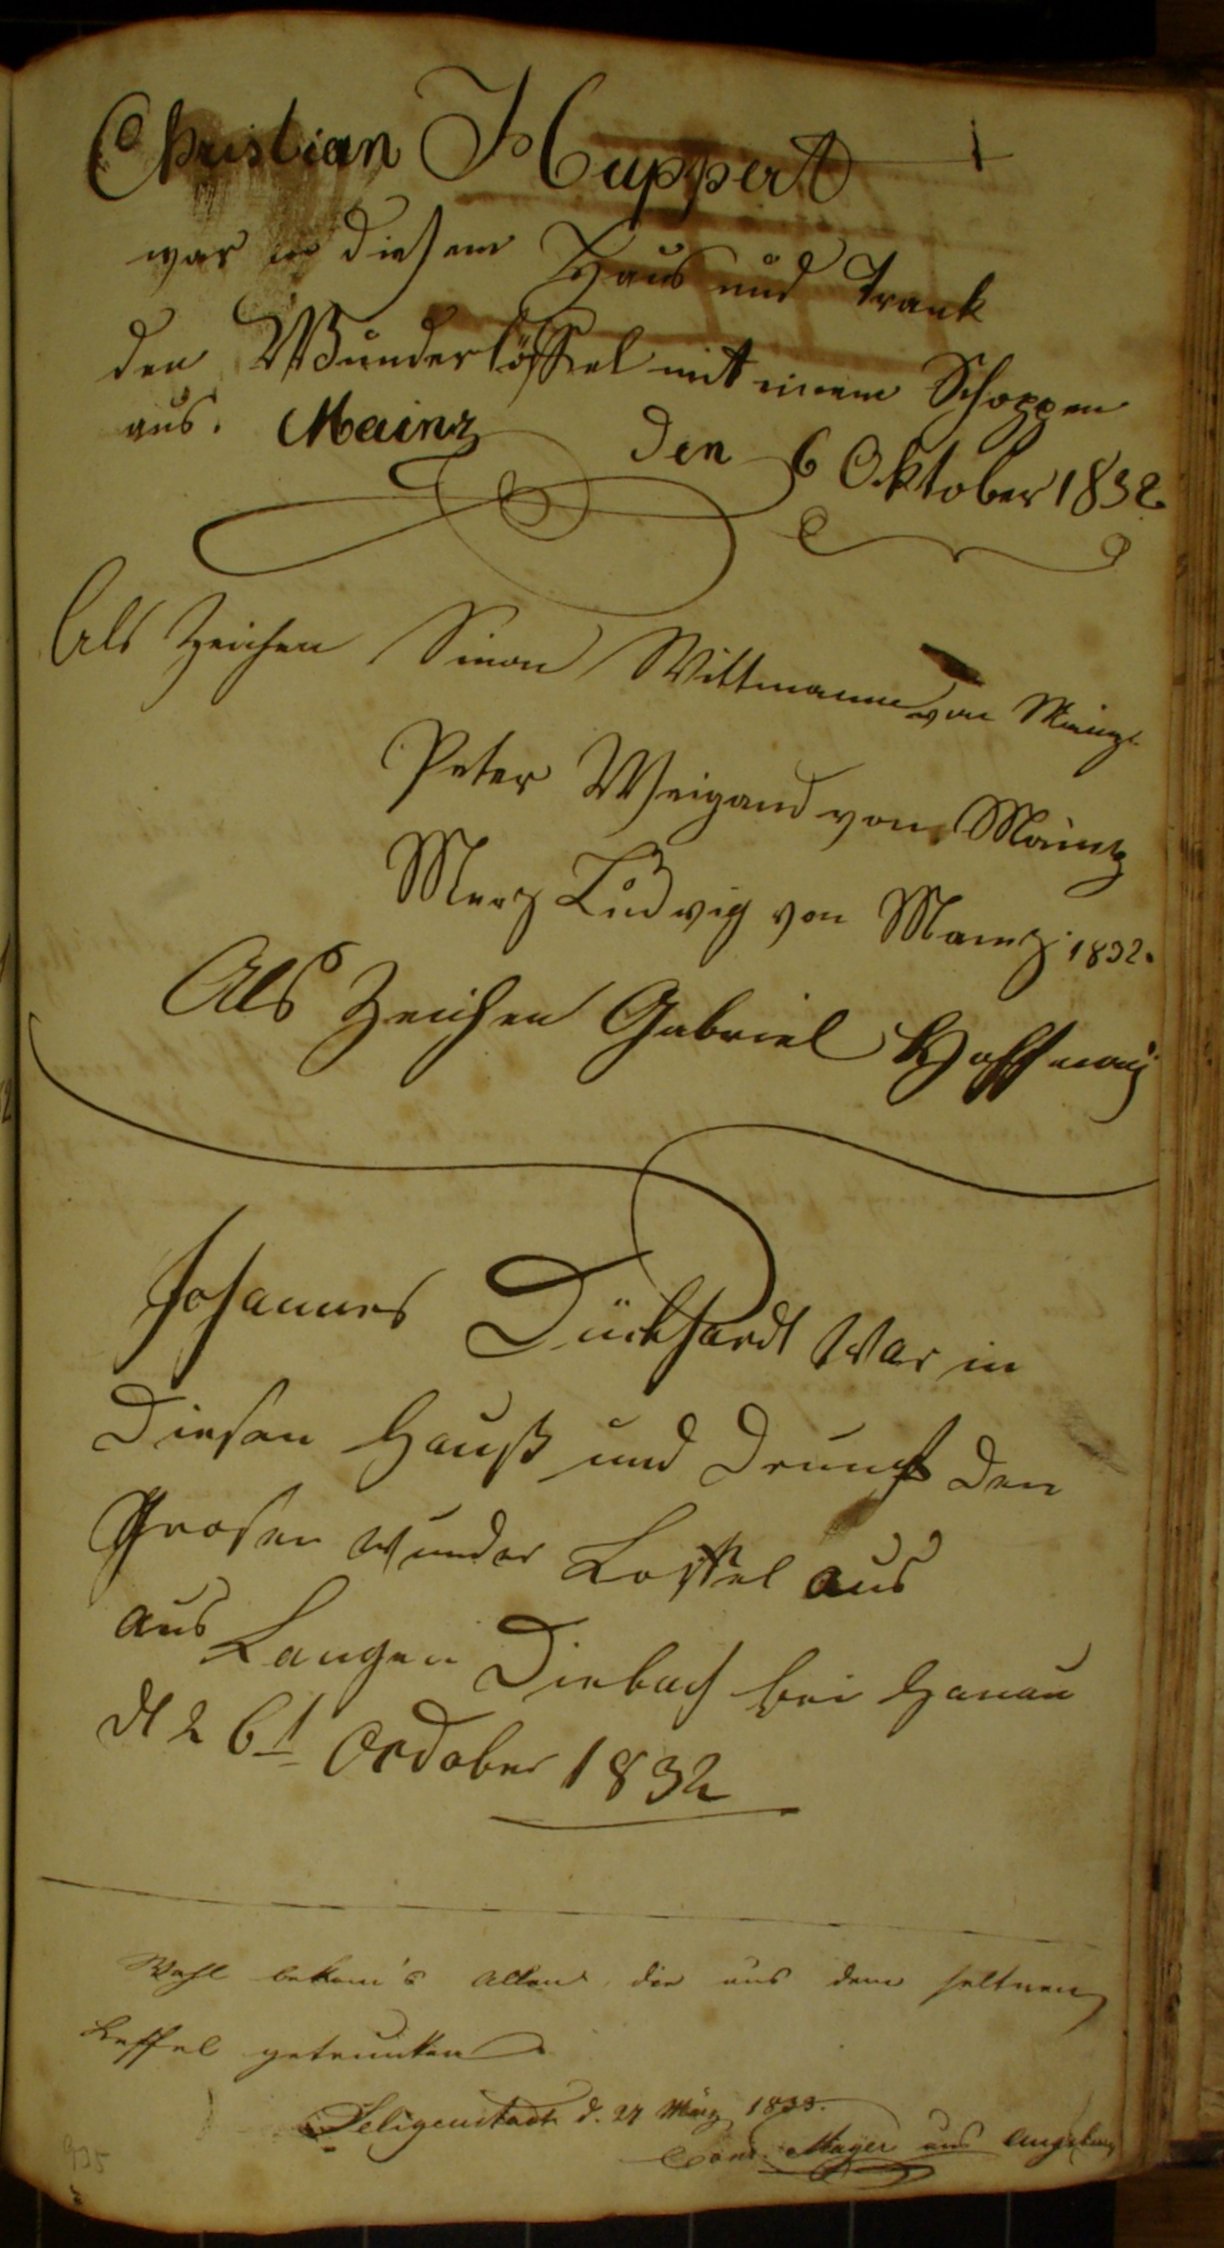 Christian Huppert
war in diesem Haus und Trank
den Wunderlöffel mit einem Schoppen
aus. Mainz den 6 Oktober 1832.
Als Zeichen Simon Wittmann von Mainz
Peter Weigand von Maintz
Merz Ludwig von Mainz. 1832.
Als Zeichen Gabriel Hoffmann
Johannes Dückhardt War in
Diesen Hauß und Drunck den
Grosen wunder Loffel aus
aus Langen Diebach bei Hanau
d 26t Ocdober 1832
Wohl bekom's Allen, die aus dem seltnen
Leffel getrunken
Seligenstadt d. 27 März 1833.
Conr. Mayer aus Augsburg
935